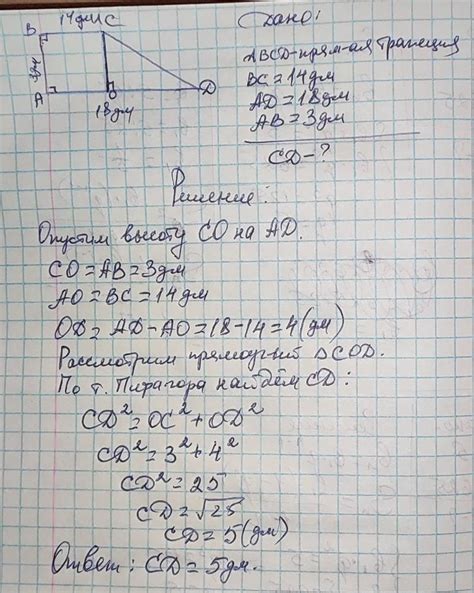 14дм
B C
3дм
A O D
18дм
Дано:
ABCD-прям-ая трапеция
BC=14дм
AD=18дм
AB=3дм
CD-?
Решение:
Опустим высоту CO на AD.
CO=AB=3дм
AO=BC=14дм
OD=AD-AO=18-14=4(дм)
Рассмотрим прямоуг-ый ΔCOD.
По т. Пифагора найдём CD:
CD²=OC²+OD²
CD²=3²+4²
CD²=25
CD=√25
CD=5(дм)
Ответ: CD=5дм.